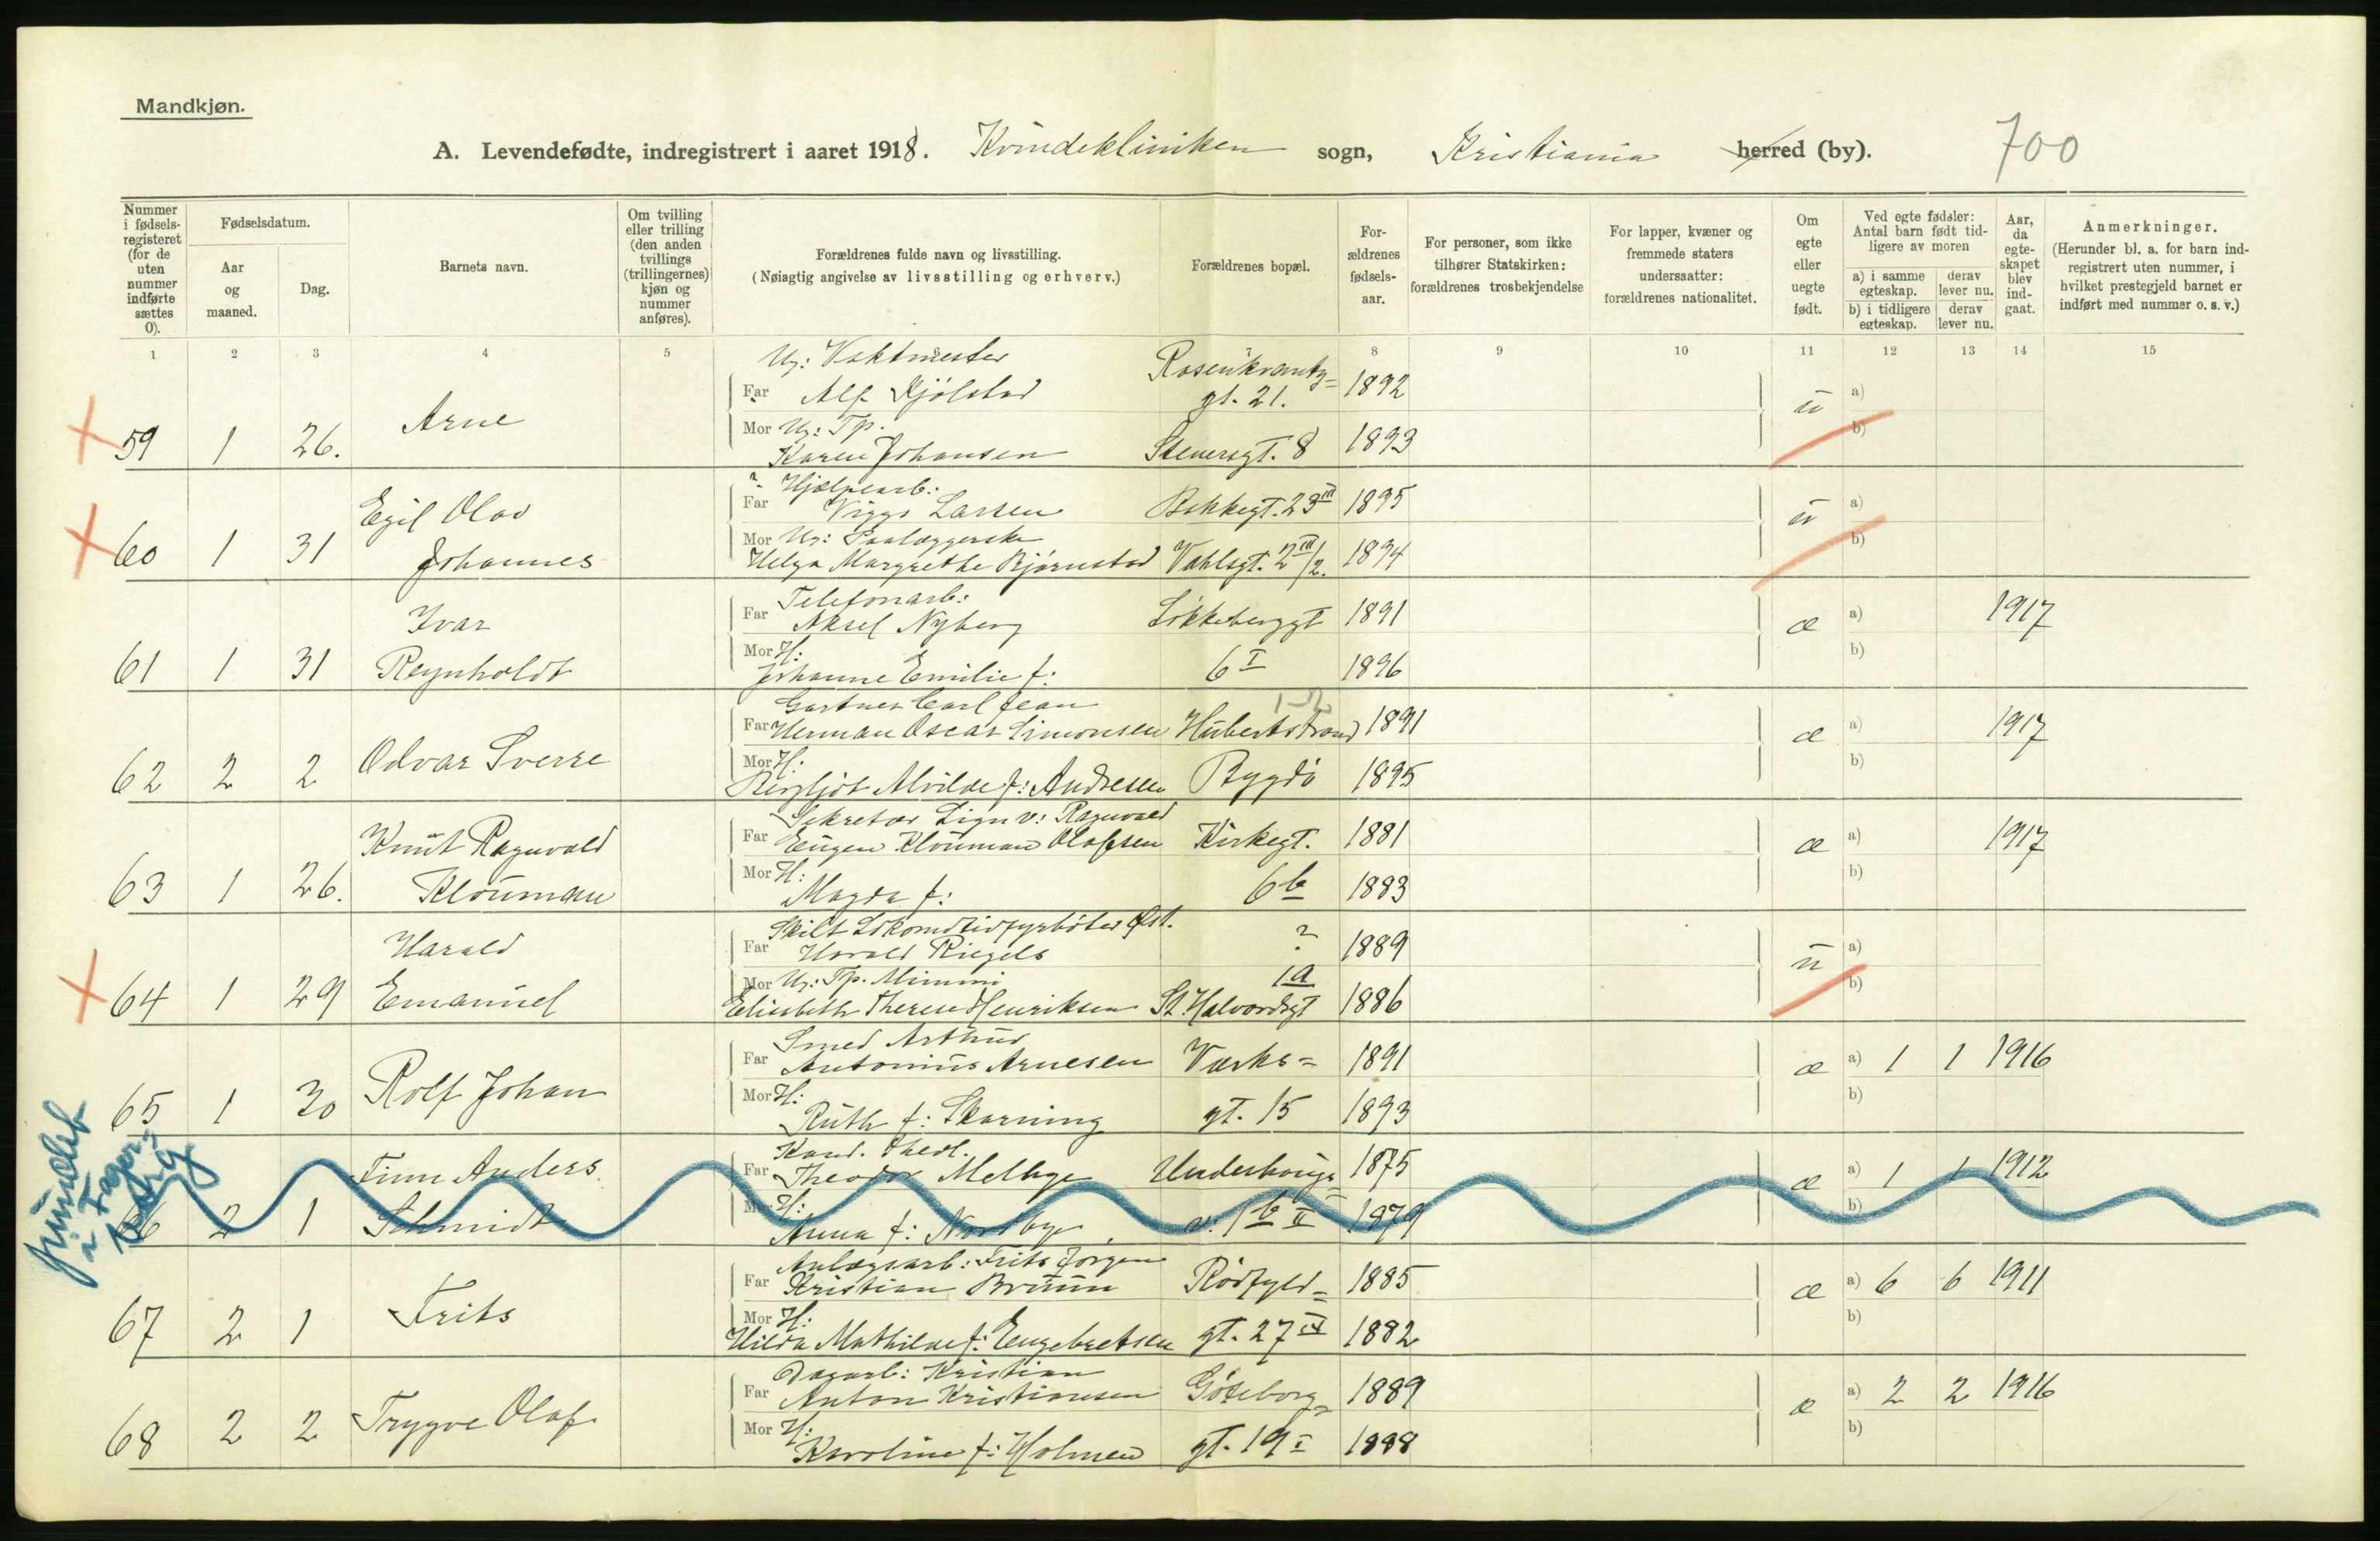 Mandkjøn.
A. Levendefødte, indregistrert i aaret 1918. Kvindekliniken sogn, Kristiania herred (by). 700
Nummer i fødselsregisteret (for de uten nummer indførte sættes 0).
Fødselsdatum.
Aar og maaned.
Dag.
Barnets navn.
Om tvilling eller trilling (den anden tvillings (trillingernes) kjøn og nummer anføres).
Forældrenes fulde navn og livsstilling.
(Nøiagtig angivelse av livsstilling og erhverv.)
Forældrenes bopæl.
Forældrenes fødselsaar.
For personer, som ikke tilhører Statskirken: forældrenes trosbekjendelse
For lapper, kvæner og fremmede staters undersaatter: forældrenes nationalitet.
Om egte eller uegte født.
Ved egte fødsler: Antal barn født tidligere av moren
a) i samme egteskap.
derav lever nu.
b) i tidligere egteskap.
derav lever nu.
Aar, da egteskapet blev indgaat.
Anmerkninger.
(Herunder bl. a. for barn indregistrert uten nummer, i hvilket prestegjeld barnet er indført med nummer o. s. v.)
1 2 3 4 5 7 8 9 10 11 12 13 14 15
Ug: Vaktmester Rosenkrantz=
Far Alf Kjølstad gt. 21. 1892 u a)
59 1 26. Arne
Mor Ug: Tp. b)
Karen Johansen Stenersgt. 8 1893
Hjælpearb:
Far Viggo Larsen Bakkegt. 23 III 1895 u a)
60 1 31 Egil Olav Johannes
Mor Ug: Paalæggerske b)
Helga Margrethe Bjørnstad Vahlsgt. 2 III/2. 1894
Telefonarb:
Far Aksel Nyberg Løkkeberggt 1891 æ a) 1917
61 1 31 Ivar Reynholdt
Mor H: b)
Johanne Emilie f: 6 I 1896
Gartner Carl Jean
Far Herman Oscar Simonsen Hubertstrand 1891 æ a) 1917
62 2 2 Odvar Sverre
Mor H: b)
Bergljot Alvilde f: Andresen Bygdø 1895
Sekretær Ragnvald
Far Eugen Klouman Olafsen Kirkegt. 1881 æ a) 1917
63 1 26. Knut Ragnvald Klouman
Mor H: b)
Magda f: 6 b 1883
Skilt Lokomotivfyrbøter
Far Harald Riegels ? 1889 u a)
64 1 29 Harald Emanuel
Mor Ug: Tp. Mimmi 1 a b)
Elisabeth Therese Henriksen St. Halvardsgt 1886
Smed Arthur
Far Antonius Arnesen Værks= 1891 æ a) 1 1 1916
65 1 30 Rolf Johan
Mor H: b)
Ruth f: Skarning gt. 15 1893
Kand. Theol.
Far Theodor Melbye 1875 æ a) 1 1 1912
66 2 1 Finn Anders Schmidt
Mor H: b)
Anna f: Nordbye v. 1 b II 1879
Anlægsarb: Frits Jørgen
Far Kristian Bruun Rødfyld= 1885 æ a) 6 6 1911
67 2 1 Frits
Mor H: b)
Hilda Mathilde f: Engebretsen gt. 27 IV 1882
Dagarb: Kristian
Far Anton Kristiansen Gøteborg= 1889 æ a) 2 2 1916
68 2 2 Trygve Olaf
Mor H: b)
Karoline f: Holmen gt. 19 I 1888